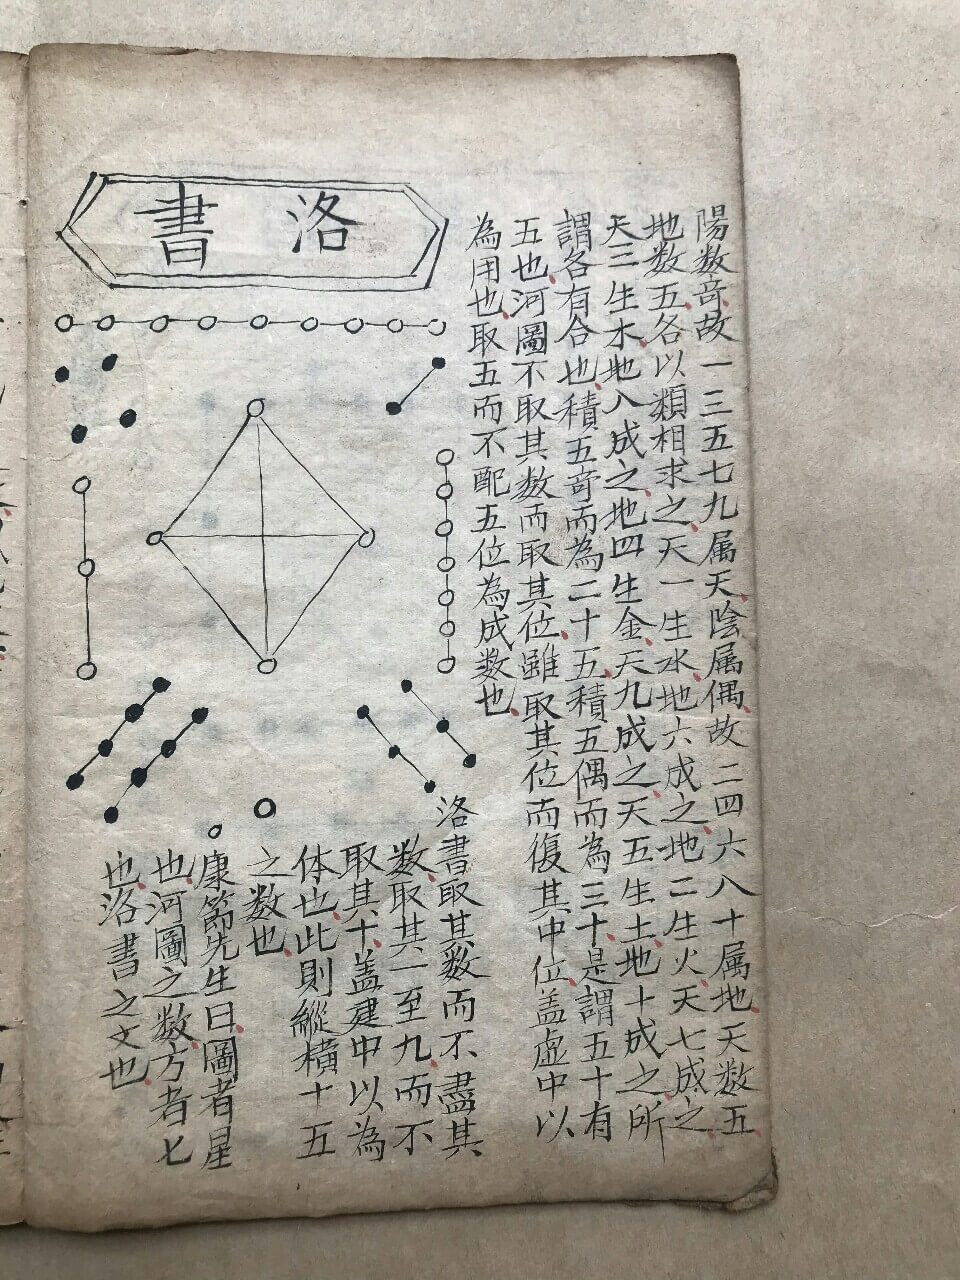 陽数奇故一三五七九属天陰属偶故二四六八十属地天数五
地数五各以類相求之天一生水地六成之地二生火天七成之
天三生木地八成之地四生金天九成之天五生土地十成之所
謂各有合也積五奇而為二十五積五偶而為三十是謂五十有
五也河圖不取其数而取其位雖取其位而復其中位盖虚中以
為用也取五而不配五位為成数也
洛書
洛書取其数而不盡其
数取其一至九而不
取其十盖建中以為
体也此則縱橫十五
之数也
康節先生曰圖者星
也河圖之数方者七
也洛書之文也